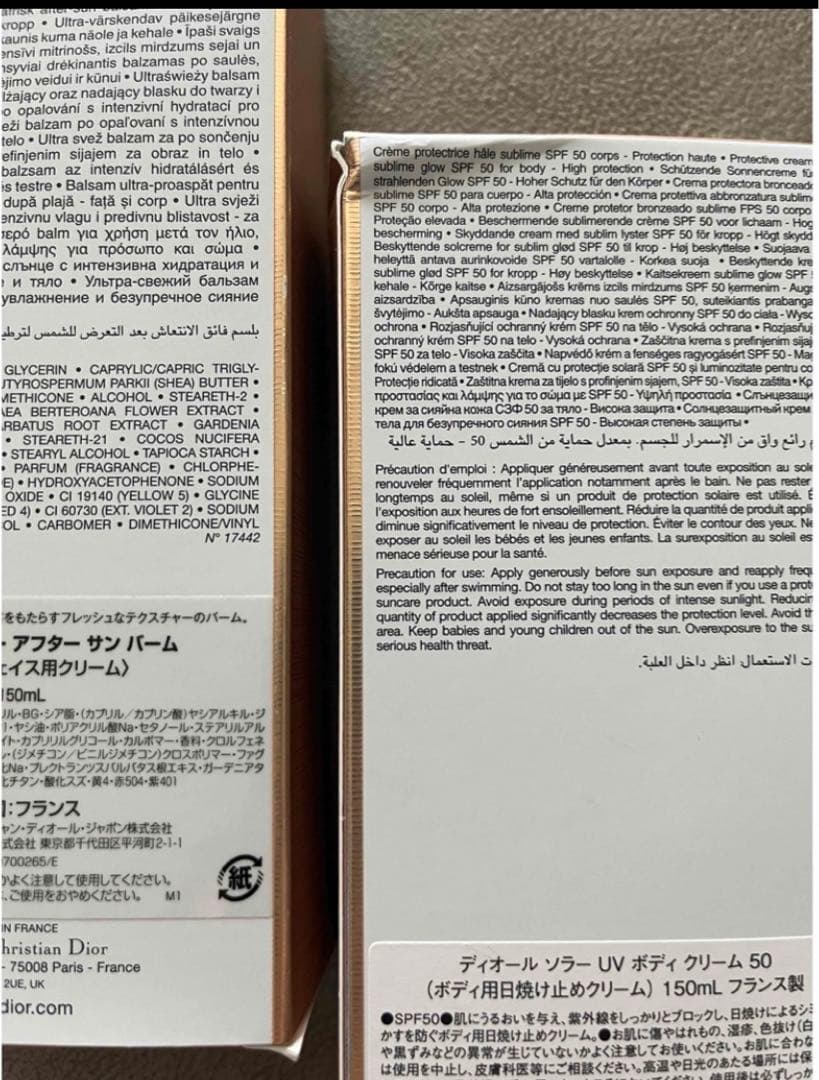 kropp • Ultra-värskendav päikesejärgne
kaunis kuma näole ja kehale • Īpaši svaigs
ensīvi mitrinošs, izcils mirdzums sejai un
syviai drėkinantis balzamas po saulės,
ėjimo veidui ir kūnui • Ultraświeży balsam
lżający oraz nadający blasku do twarzy i
o opalování s intenzivní hydratací pro
eži balzam po opaľovaní s intenzívnou
telo • Ultra svež balzam za po sončenju
efinjenim sijajem za obraz in telo •
balzsam az intenzív hidratálásért és
s testre • Balsam ultra-proaspăt pentru
după plajă - față și corp • Ultra svježi
enzivnu vlagu i predivnu blistavost - za
ερό balm για χρήση μετά τον ήλιο,
λάμψης για πρόσωπο και σώμα •
слънце с интензивна хидратация и
и тяло • Ультра-свежий бальзам
увлажнение и безупречное сияние
بلسم فائق الانتعاش بعد التعرض للشمس لترطيب
GLYCERIN • CAPRYLIC/CAPRIC TRIGLY-
UTYROSPERMUM PARKII (SHEA) BUTTER •
METHICONE • ALCOHOL • STEARETH-2 •
AEA BERTEROANA FLOWER EXTRACT •
RBATUS ROOT EXTRACT • GARDENIA
• STEARETH-21 • COCOS NUCIFERA
• STEARYL ALCOHOL • TAPIOCA STARCH •
PARFUM (FRAGRANCE) • CHLORPHE-
E) • HYDROXYACETOPHENONE • SODIUM
OXIDE • CI 19140 (YELLOW 5) • GLYCINE
ED 4) • CI 60730 (EXT. VIOLET 2) • SODIUM
OL • CARBOMER • DIMETHICONE/VINYL
N° 17442
をもたらすフレッシュなテクスチャーのバーム。
・アフター サン バーム
ェイス用クリーム〉
150mL
リル・BG・シア脂・(カプリル/カプリン酸)ヤシアルキル・ジ
1・ヤシ油・ポリアクリル酸Na・セタノール・ステアリルアル
イト・カプリリルグリコール・カルボマー・香料・クロルフェネ
ン・(ジメチコン/ビニルジメチコン)クロスポリマー・ファグ
ヒNa・プレクトランツスバルバタス根エキス・ガーデニアタ
ヒチタン・酸化スズ・黄4・赤504・紫401
]:フランス
ャン・ディオール・ジャポン株式会社
式会社 東京都千代田区平河町2-1-1
700265/E
かよく注意して使用してください。
、ご使用をおやめください。 M1
紙
IN FRANCE
hristian Dior
- 75008 Paris - France
2UE, UK
dior.com
Crème protectrice hâle sublime SPF 50 corps - Protection haute • Protective cream
sublime glow SPF 50 for body - High protection • Schützende Sonnencreme fü
strahlenden Glow SPF 50 - Hoher Schutz für den Körper • Crema protectora bronceado
sublime SPF 50 para cuerpo - Alta protección • Crema protettiva abbronzatura sublim
SPF 50 corpo - Alta protezione • Creme protetor bronzeado sublime FPS 50 corpo
Proteção elevada • Beschermende sublimerende crème SPF 50 voor lichaam - Hog
bescherming • Skyddande cream med sublim lyster SPF 50 för kropp - Högt skydd
Beskyttende solcreme for sublim glød SPF 50 til krop - Høj beskyttelse • Suojaava
heleyttä antava aurinkovoide SPF 50 vartalolle - Korkea suoja • Beskyttende kre
sublime glød SPF 50 for kropp - Høy beskyttelse • Kaitsekreem sublime glow SPF
kehale - Kõrge kaitse • Aizsargājošs krēms izcils mirdzums SPF 50 ķermenim - Augs
aizsardzība • Apsauginis kūno kremas nuo saulės SPF 50, suteikiantis prabanga
švytėjimo - Aukšta apsauga • Nadający blasku krem ochronny SPF 50 do ciała - Wyso
ochrona • Rozjasňující ochranný krém SPF 50 na tělo - Vysoká ochrana • Rozjasňuj
ochranný krém SPF 50 na telo - Vysoká ochrana • Zaščitna krema s prefinjenim sijaj
SPF 50 za telo - Visoka zaščita • Napvédő krém a fenséges ragyogásért SPF 50 - Ma
fokú védelem a testnek • Cremă cu protecție solară SPF 50 și luminozitate pentru co
Protecție ridicată • Zaštitna krema za tijelo s profinjenim sjajem, SPF 50 - Visoka zaštita • Κρ
προστασίας και λάμψης για το σώμα με SPF 50 - Υψηλή προστασία • Слънцезащи
крем за сияйна кожа СЗФ 50 за тяло - Висока защита • Солнцезащитный крем
тела для безупречного сияния SPF 50 - Высокая степень защиты •
م رائع واق من الإسمرار للجسم. بمعدل حماية من الشمس 50 - حماية عالية
Précaution d'emploi : Appliquer généreusement avant toute exposition au sole
renouveler fréquemment l'application notamment après le bain. Ne pas rester
longtemps au soleil, même si un produit de protection solaire est utilisé. É
l'exposition aux heures de fort ensoleillement. Réduire la quantité de produit appli
diminue significativement le niveau de protection. Éviter le contour des yeux. Ne
exposer au soleil les bébés et les jeunes enfants. La surexposition au soleil es
menace sérieuse pour la santé.
Precaution for use: Apply generously before sun exposure and reapply frequ
especially after swimming. Do not stay too long in the sun even if you use a prot
suncare product. Avoid exposure during periods of intense sunlight. Reducin
quantity of product applied significantly decreases the protection level. Avoid th
area. Keep babies and young children out of the sun. Overexposure to the su
serious health threat.
ت الاستعمال: انظر داخل العلبة.
ディオール ソラー UV ボディ クリーム 50
(ボディ用日焼け止めクリーム) 150mL フランス製
●SPF50●肌にうるおいを与え、紫外線をしっかりとブロックし、日焼けによるシミ
かすを防ぐボディ用日焼け止めクリーム。●お肌に傷やはれもの、湿疹、色抜け(白
や黒ずみなどの異常が生じていないかよく注意してお使いください。お肌に合わな
は使用を中止し、皮膚科医等にご相談ください。高温や日光のあたる場所には保